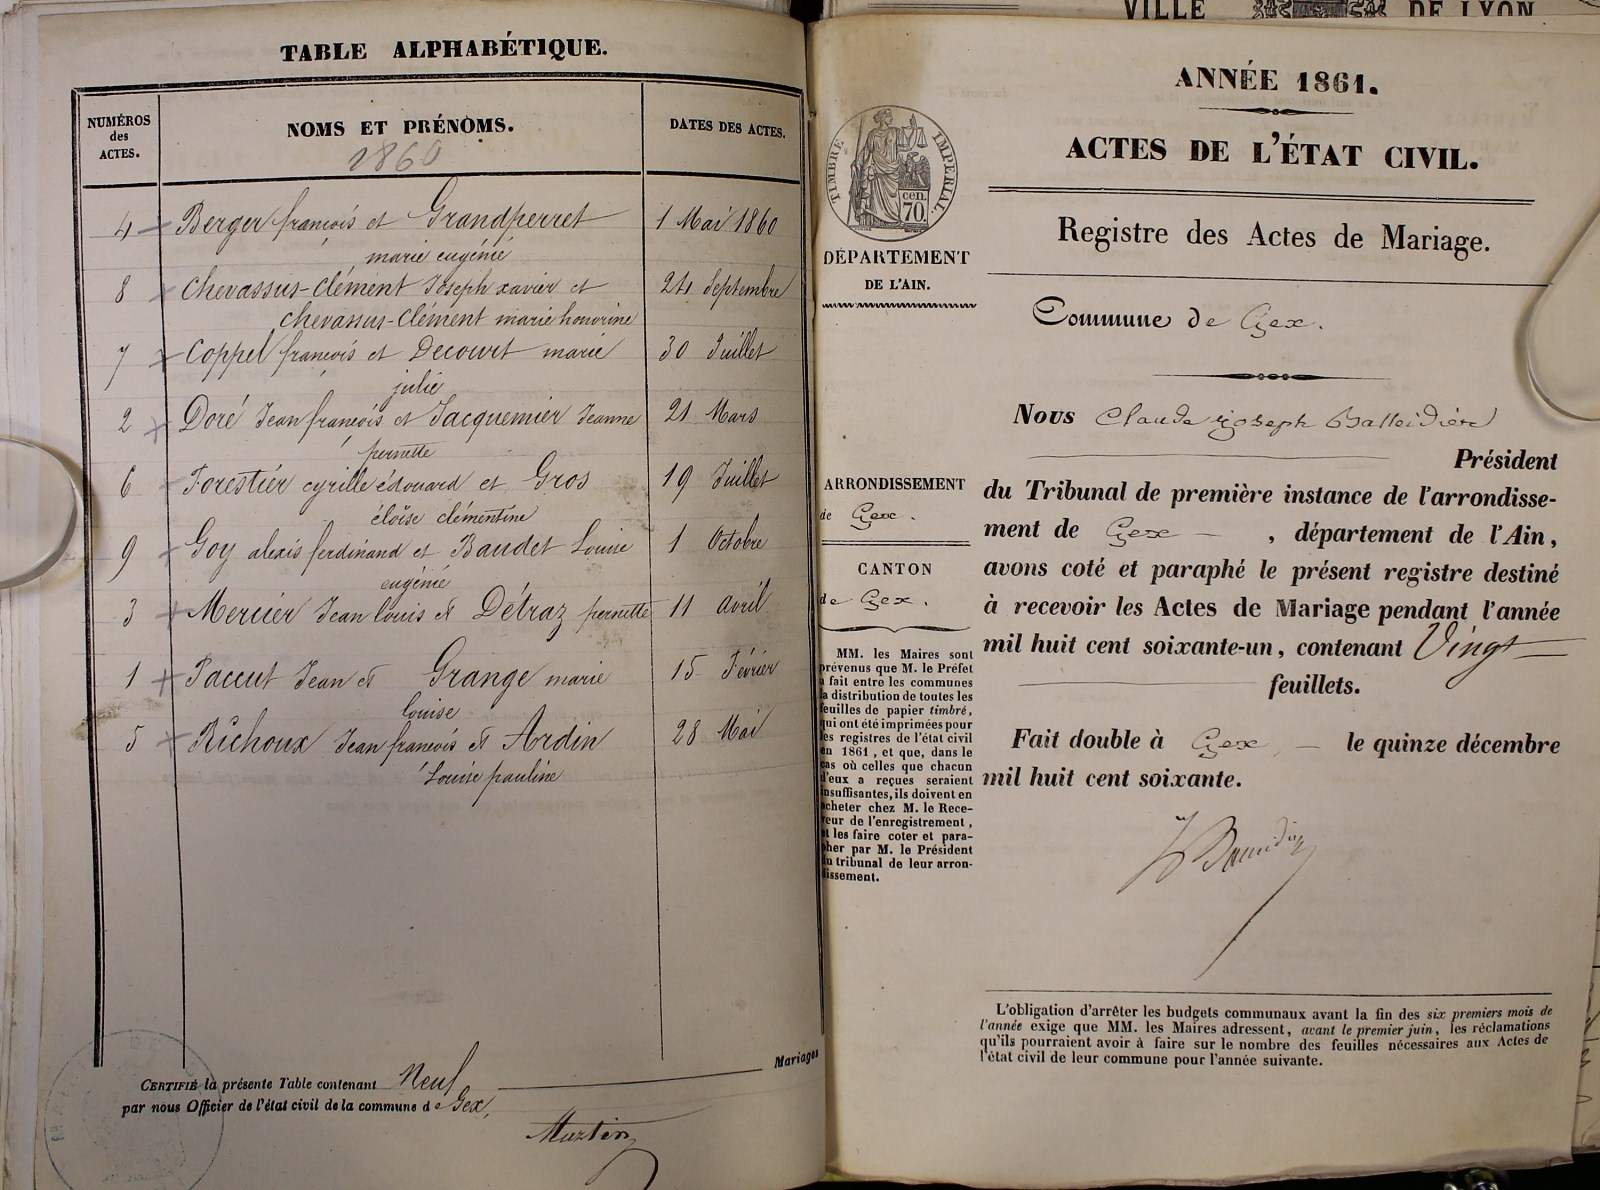 TABLE ALPHABÉTIQUE.
NUMÉROS
des
ACTES.
NOMS ET PRÉNOMS.
1860
DATES DES ACTES.
4 Berger françois et Grandperret 1 Mai 1860
marie eugénie
8 Chevassus-Clément Joseph xavier et 24 Septembre
Chevassus-Clément marie honorine
7 Coppel françois et Decourt marie 30 Juillet
julie
2 Doré Jean françois et Jacquemier Jeanne 21 Mars
pernette
6 Forestier cyrille édouard et Gros 19 Juillet
éloïse clémentine
9 Goy alexis ferdinand et Baudet Louise 1 Octobre
eugénie
3 Mercier Jean louis et Détraz pernette 11 avril
1 Paccut Jean et Grange marie 15 Février
louise
5 Richoux Jean françois et Ardin 28 Mai
Louise pauline
Mariages
CERTIFIÉ la présente Table contenant Neuf
par nous Officier de l'état civil de la commune de Gex,
Martin
VILLE DE LYON
ANNÉE 1861.
ACTES DE L'ÉTAT CIVIL.
Registre des Actes de Mariage.
TIMBRE IMPÉRIAL.
cen.
70.
DÉPARTEMENT
DE L'AIN.
Commune de Gex.
ARRONDISSEMENT
de Gex.
CANTON
de Gex.
MM. les Maires sont
prévenus que M. le Préfet
a fait entre les communes
la distribution de toutes les
feuilles de papier timbré,
qui ont été imprimées pour
les registres de l'état civil
en 1861, et que, dans le
cas où celles que chacun
d'eux a reçues seraient
insuffisantes, ils doivent en
acheter chez M. le Rece-
veur de l'enregistrement,
et les faire coter et para-
pher par M. le Président
du tribunal de leur arron-
dissement.
Nous Claude Joseph
Président
du Tribunal de première instance de l'arrondisse-
ment de Gex , département de l'Ain,
avons coté et paraphé le présent registre destiné
à recevoir les Actes de Mariage pendant l'année
mil huit cent soixante-un, contenant Vingt
feuillets.
Fait double à Gex, le quinze décembre
mil huit cent soixante.
L'obligation d'arrêter les budgets communaux avant la fin des six premiers mois de
l'année exige que MM. les Maires adressent, avant le premier juin, les réclamations
qu'ils pourraient avoir à faire sur le nombre des feuilles nécessaires aux Actes de
l'état civil de leur commune pour l'année suivante.